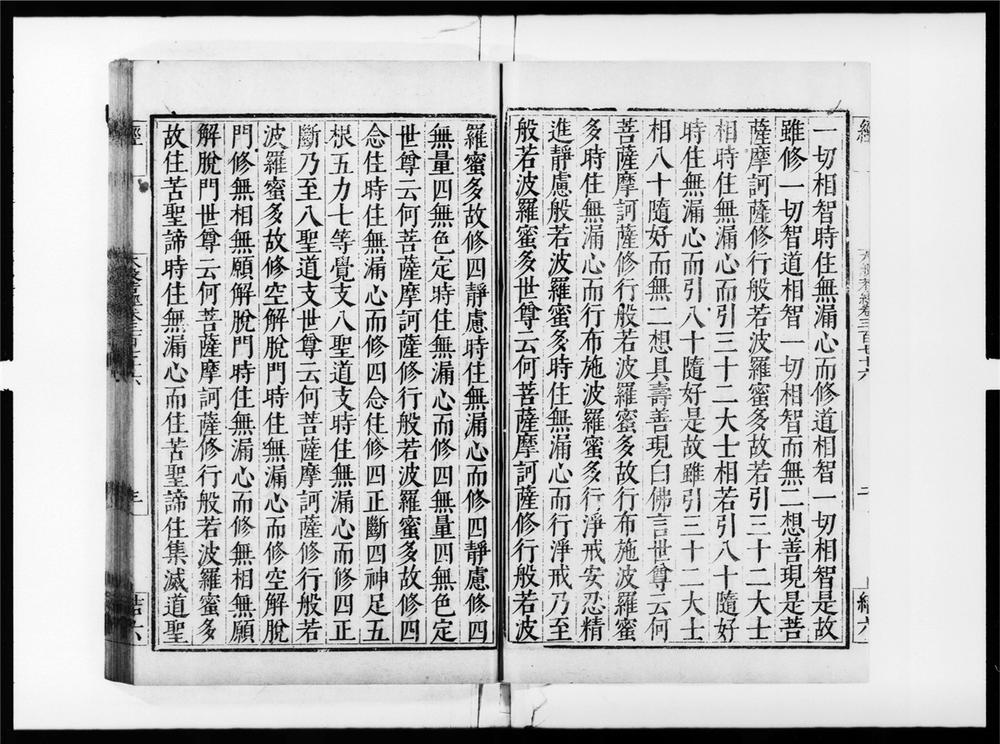 一切相智時住無漏心而修道相智一切相智是故
雖修一切智道相智一切相智而無二想善現是菩
薩摩訶薩修行般若波羅蜜多故若引三十二大士
相時住無漏心而引三十二大士相若引八十隨好
時住無漏心而引八十隨好是故雖引三十二大士
相八十隨好而無二想具壽善現白佛言世尊云何
菩薩摩訶薩修行般若波羅蜜多故行布施波羅蜜
多時住無漏心而行布施波羅蜜多行淨戒安忍精
進靜慮般若波羅蜜多時住無漏心而行淨戒乃至
般若波羅蜜多世尊云何菩薩摩訶薩修行般若波
羅蜜多故修四靜慮時住無漏心而修四靜慮修四
無量四無色定時住無漏心而修四無量四無色定
世尊云何菩薩摩訶薩修行般若波羅蜜多故修四
念住時住無漏心而修四念住修四正斷四神足五
根五力七等覺支八聖道支時住無漏心而修四正
斷乃至八聖道支世尊云何菩薩摩訶薩修行般若
波羅蜜多故修空解脫門時住無漏心而修空解脫
門修無相無願解脫門時住無漏心而修無相無願
解脫門世尊云何菩薩摩訶薩修行般若波羅蜜多
故住苦聖諦時住無漏心而住苦聖諦住集滅道聖
經
大般若經卷三百七十六